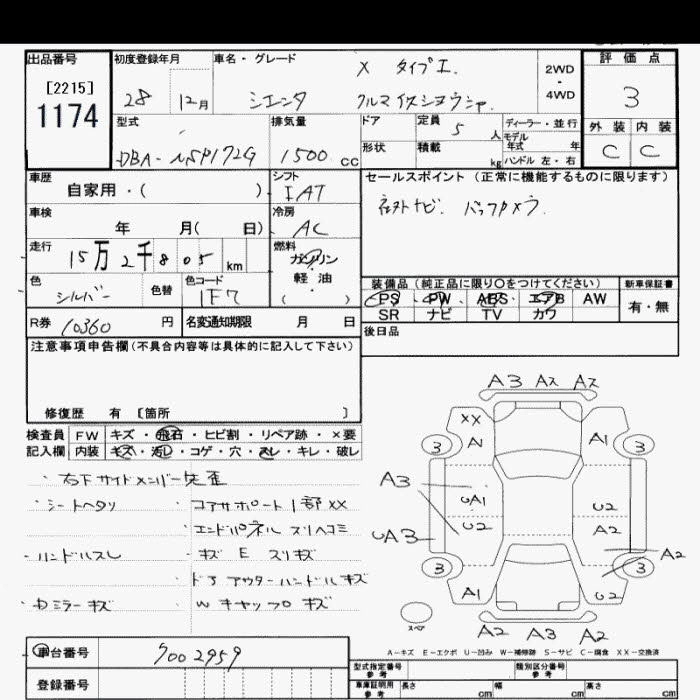 出品番号 初度登録年月 車名・グレード 評価点
[2215] 1174
28 12月 シエンタ X タイプエ. クルマイスシヨウシャ. 2WD・4WD 3
型式 排気量 ドア 定員 5人 ディーラー・並行 外装 内装
モデル年式 年
DBA-NSP172G 1500cc 形状 積載 kg ハンドル 左・右 C C
車歴 自家用・( ) シフト IAT セールスポイント (正常に機能するものに限ります)
車検 年 月( 日) 冷房 AC
社外ナビ. バックカメラ.
走行 15万2千805km 燃料 ガソリン 軽・油 ( )
色 シルバー 色替 色コード 1F7
装備品(純正品に限り○をつけてください) 新車保証書
PS PW ABS エアB AW 有・無
SR ナビ TV カワ
R券 10360円 名変通知期限 月 日 後日品
注意事項申告欄(不具合内容等は具体的に記入して下さい)
修復歴 有 [箇所 ]
検査員 FW キズ・飛石・ヒビ割・リペア跡・×要
記入欄 内装 キズ・汚レ・コゲ・穴・スレ・キレ・破レ
・右下サイドメンバー先歪
・シートヘタリ ・コアサポート1部XX
・エンドパネル スリヘコミ
・ハンドルスレ ・キズ E スリキズ
・ドア アウターハンドルキズ
・Dミラーキズ Wキャップキズ
A3 A2 A2
XX
A A1
3 3
A3 UA1 U2
U2 A2
UA3 A2
3 3
A1 U2
スペア
A2 A3 A2
A-キズ E-エクボ U-凹み W-補修跡 S-サビ C-腐食 XX-交換済
車台番号 7002959
登録番号
型式指定番号 参考 類別区分番号 参考
車庫証明用 参考 長さ cm 幅 cm 高さ cm